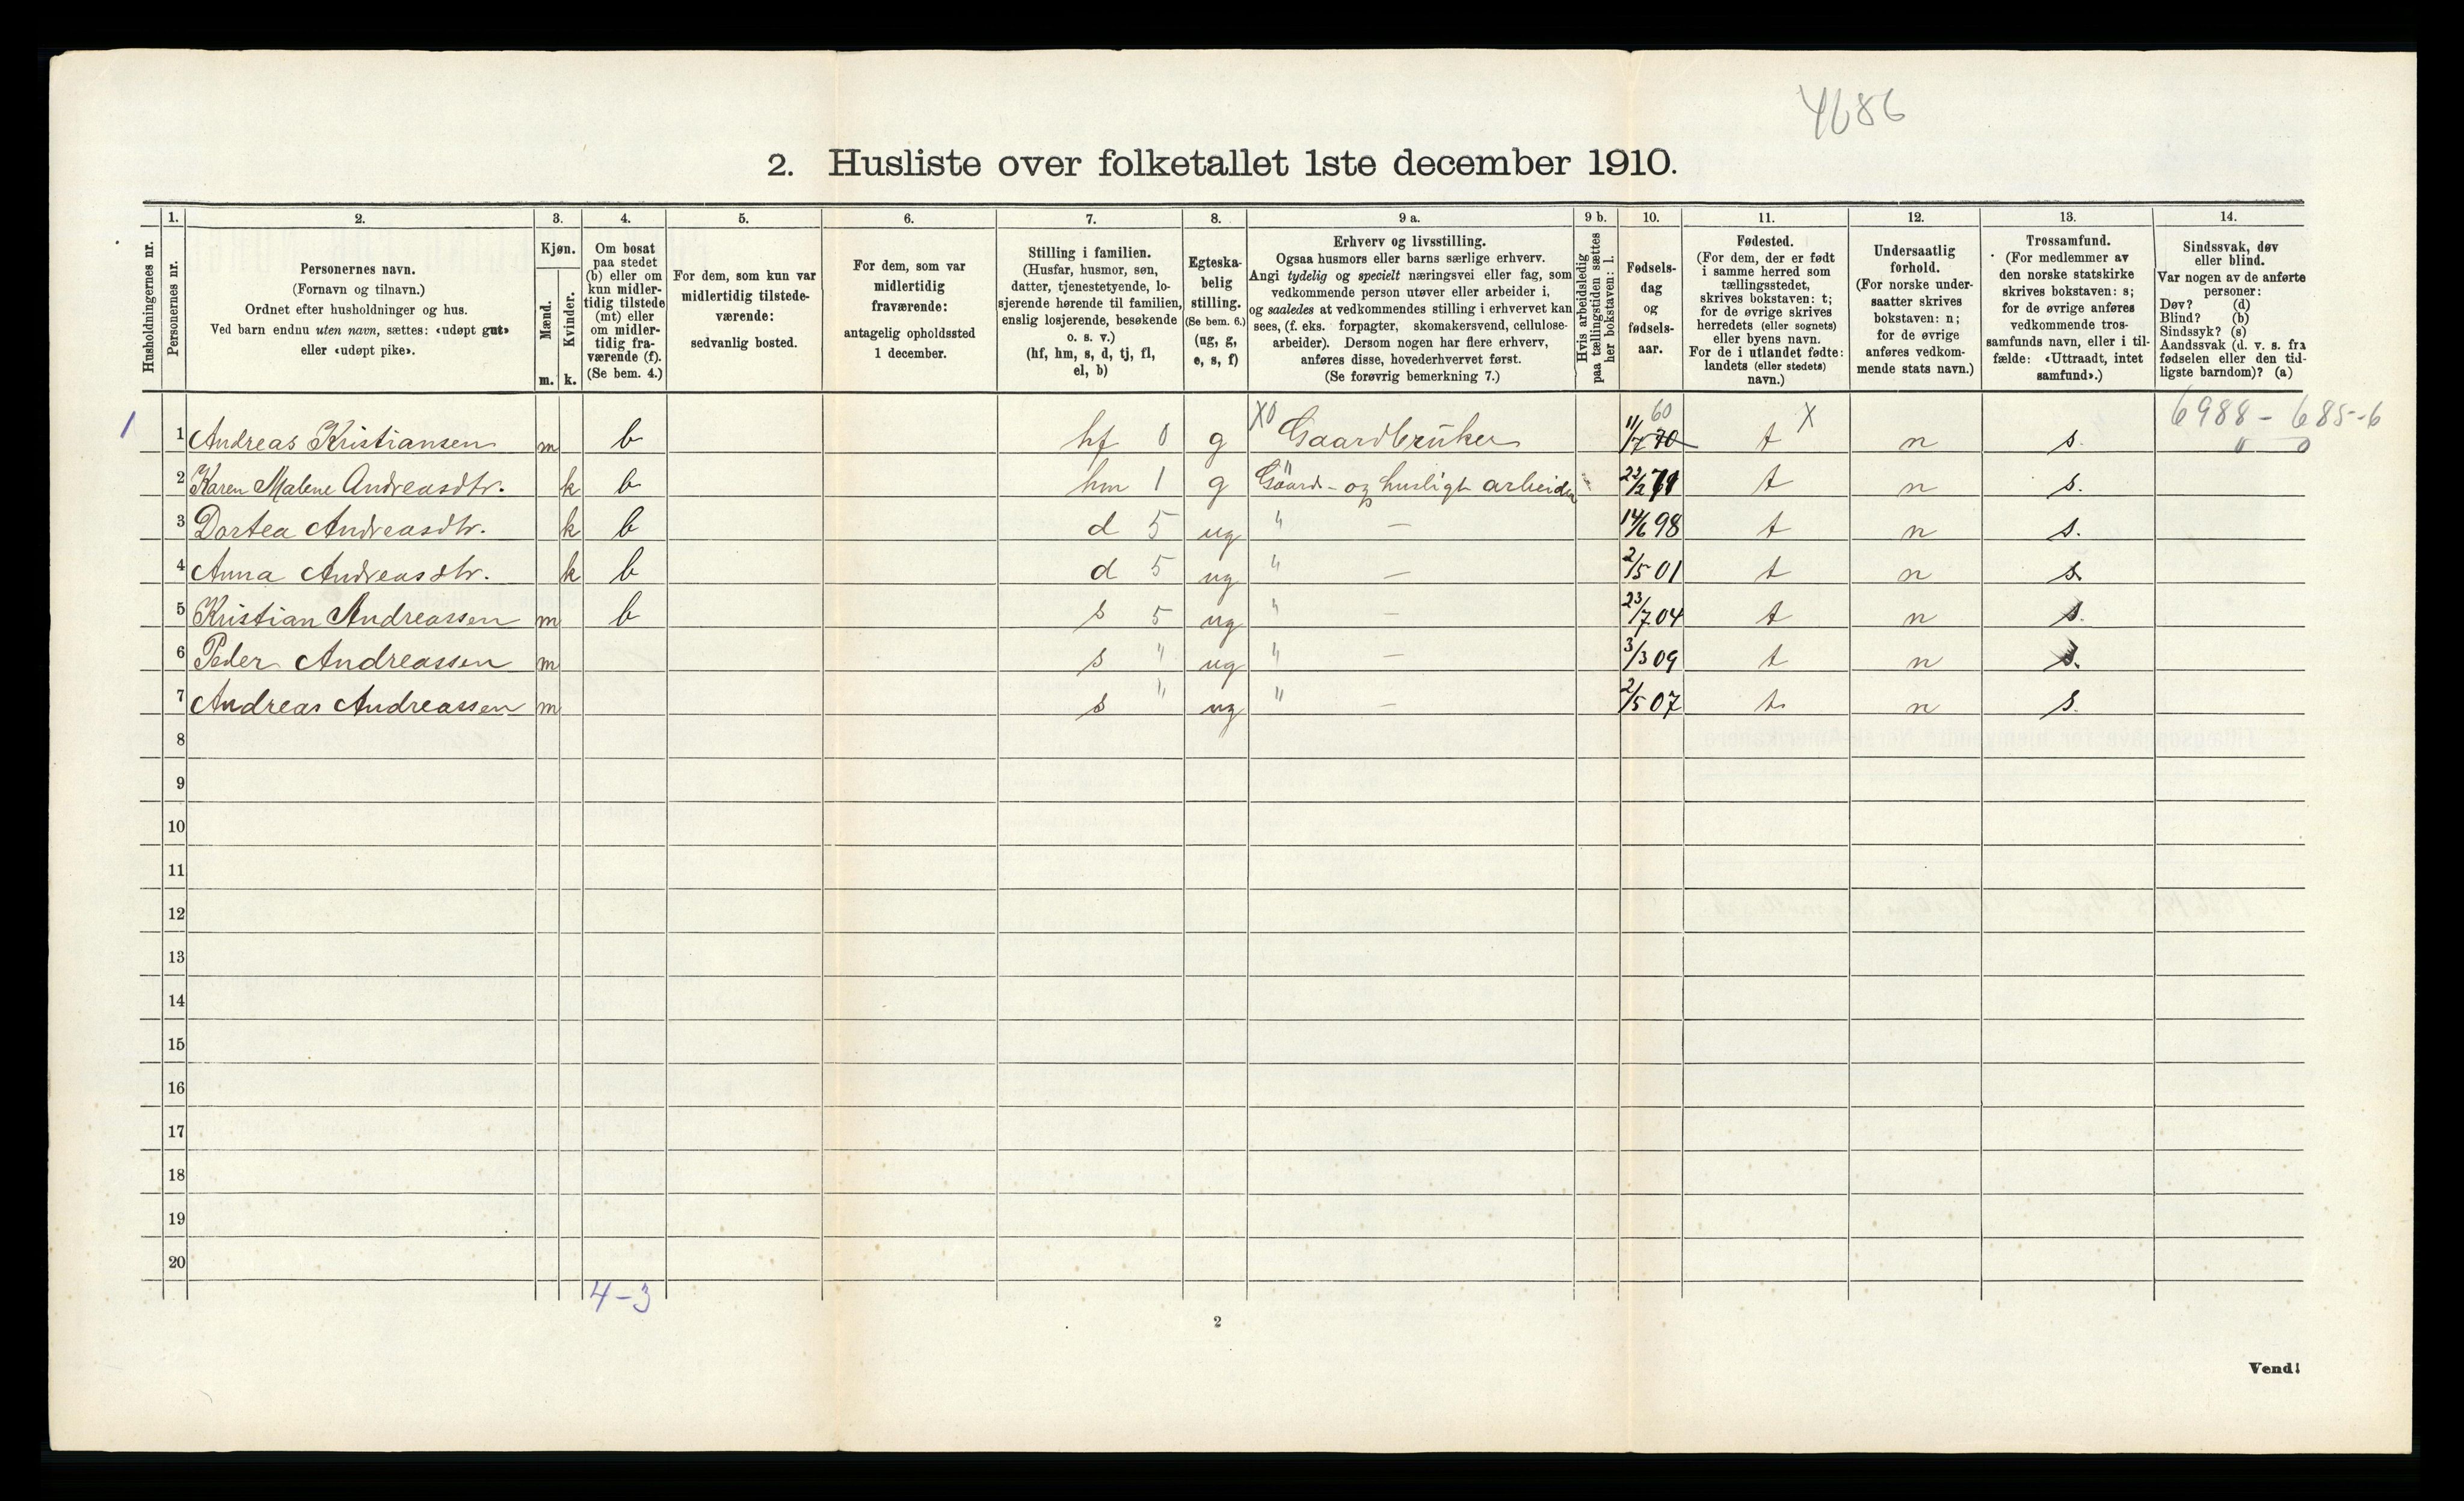 4686
2. Husliste over folketallet 1ste december 1910.
Husholdningernes nr.
1.
Personernes nr.
2.
Personernes navn.
(Fornavn og tilnavn.)
Ordnet efter husholdninger og hus.
Ved barn endnu uten navn, sættes: «udøpt gut»
eller «udøpt pike».
3.
Kjøn.
Mænd.
m.
Kvinder.
k.
4.
Om bosat
paa stedet
(b) eller om
kun midler-
tidig tilstede
(mt) eller
om midler-
tidig fra-
værende (f).
(Se bem. 4.)
5.
For dem, som kun var
midlertidig tilstede-
værende:
sedvanlig bosted.
6.
For dem, som var
midlertidig
fraværende:
antagelig opholdssted
1 december.
7.
Stilling i familien.
(Husfar, husmor, søn,
datter, tjenestetyende, lo-
sjerende hørende til familien,
enslig losjerende, besøkende
o. s. v.)
(hf, hm, s, d, tj, fl,
el, b)
8.
Egteska-
belig
stilling.
(Se bem. 6.)
(ug, g,
e, s, f)
9 a.
Erhverv og livsstilling.
Ogsaa husmors eller barns særlige erhverv.
Angi tydelig og specielt næringsvei eller fag, som
vedkommende person utøver eller arbeider i,
og saaledes at vedkommendes stilling i erhvervet kan
sees, (f. eks. forpagter, skomakersvend, cellulose-
arbeider). Dersom nogen har flere erhverv,
anføres disse, hovederhvervet først.
(Se forøvrig bemerkning 7.)
9 b.
Hvis arbeidsledig
paa tællingstiden sættes
her bokstaven: l.
10.
Fødsels-
dag
og
fødsels-
aar.
11.
Fødested.
(For dem, der er født
i samme herred som
tællingsstedet,
skrives bokstaven: t;
for de øvrige skrives
herredets (eller sognets)
eller byens navn.
For de i utlandet fødte:
landets (eller stedets)
navn.)
12.
Undersaatlig
forhold.
(For norske under-
saatter skrives
bokstaven: n;
for de øvrige
anføres vedkom-
mende stats navn.)
13.
Trossamfund.
(For medlemmer av
den norske statskirke
skrives bokstaven: s;
for de øvrige anføres
vedkommende tros-
samfunds navn, eller i til-
fælde: «Uttraadt, intet
samfund».)
14.
Sindssvak, døv
eller blind.
Var nogen av de anførte
personer:
Døv? (d)
Blind? (b)
Sindssyk? (s)
Aandssvak (d. v. s. fra
fødselen eller den tid-
ligste barndom)? (a)
1 1 Andreas Kristiansen m b hf 0 g X0 Gaardbruker 11/7 70 60 t X n s. 6988 - 685--6 " 0
2 Karen Malene Andreasdtr. k b hm 1 g Gaard- og husligt arbeide 22/2 71 t n s.
3 Dortea Andreasdtr. k b d 5 ug " — 14/6 98 t n s.
4 Anna Andreasdtr. k b d 5 ug " — 2/5 01 t n s
5 Kristian Andreassen m b s 5 ug " — 23/7 04 t n s.
6 Peder Andreassen m s " ug " — 3/3 09 t n s.
7 Andreas Andreassen m s " ug " — 2/5 07 t. n s.
8
9
10
11
12
13
14
15
16
17
18
19
20
4-3
2
Vend!